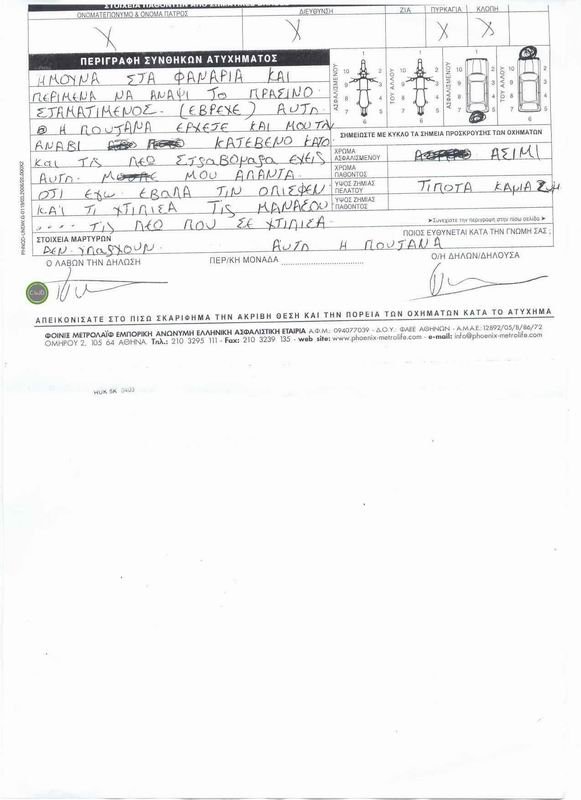 ΣΤΟΙΧΕΙΑ ΠΑΘΟΝΤΩΝ ΑΠΟ ΣΩΜΑΤΙΚΕΣ ΒΛΑΒΕΣ
ΟΝΟΜΑΤΕΠΩΝΥΜΟ & ΟΝΟΜΑ ΠΑΤΡΟΣ ΔΙΕΥΘΥΝΣΗ ΖΙΑ ΠΥΡΚΑΓΙΑ ΚΛΟΠΗ
X X X X
ΠΕΡΙΓΡΑΦΗ ΣΥΝΘΗΚΩΝ ΑΤΥΧΗΜΑΤΟΣ
ΗΜΟΥΝΑ ΣΤΑ ΦΑΝΑΡΙΑ ΚΑΙ
ΠΕΡΙΜΕΝΑ ΝΑ ΑΝΑΨΙ ΤΟ ΠΡΑΣΙΝΟ
ΣΤΑΜΑΤΙΜΕΝΟΣ (ΕΒΡΕΧΕ) ΑΥΤΗ
Η ΠΟΥΤΑΝΑ ΕΡΧΕΤΕ ΚΑΙ ΜΟΥ ΤΗΝ
ΑΝΑΒΙ ΚΑΤΕΒΕΝΟ ΚΑΤΟ
ΚΑΙ ΤΙΣ ΛΕΩ ΣΤΡΑΒΟΜΑΡΑ ΕΧΕΙΣ
ΑΥΤΗ ΜΟΥ ΑΠΑΝΤΑ
ΟΤΙ ΕΧΩ ΕΒΟΛΑ ΤΙΝ ΟΠΙΣΘΕΝ
ΚΑΙ ΤΙ ΧΤΙΠΙΣΑ ΤΙΣ ΜΑΝΑΣΟΥ
.... ΤΙΣ ΛΕΩ ΠΟΥ ΣΕ ΧΤΙΠΙΣΑ
ΑΣΦΑΛΙΣΜΕΝΟΥ ΤΟΥ ΑΛΛΟΥ ΑΣΦΑΛΙΣΜΕΝΟΥ ΤΟΥ ΑΛΛΟΥ
ΣΗΜΕΙΩΣΤΕ ΜΕ ΚΥΚΛΟ ΤΑ ΣΗΜΕΙΑ ΠΡΟΣΚΡΟΥΣΗΣ ΤΩΝ ΟΧΗΜΑΤΩΝ
ΧΡΩΜΑ ΑΣΦΑΛΙΣΜΕΝΟΥ ΑΣΙΜΙ
ΧΡΩΜΑ ΠΑΘΟΝΤΟΣ
ΥΨΟΣ ΖΗΜΙΑΣ ΠΕΛΑΤΟΥ ΤΙΠΟΤΑ ΚΑΜΙΑ
ΥΨΟΣ ΖΗΜΙΑΣ ΠΑΘΟΝΤΟΣ
➤Συνεχίστε την περιγραφή στην πίσω σελίδα➤
ΣΤΟΙΧΕΙΑ ΜΑΡΤΥΡΩΝ ΠΟΙΟΣ ΕΥΘΥΝΕΤΑΙ ΚΑΤΑ ΤΗΝ ΓΝΩΜΗ ΣΑΣ ;
ΔΕΝ ΥΠΑΡΧΟΥΝ ΑΥΤΗ Η ΠΟΥΤΑΝΑ
Ο ΛΑΒΩΝ ΤΗΝ ΔΗΛΩΣΗ ΠΕΡ/ΚΗ ΜΟΝΑΔΑ Ο/Η ΔΗΛΩΝ/ΔΗΛΟΥΣΑ
ΑΠΕΙΚΟΝΙΣΑΤΕ ΣΤΟ ΠΙΣΩ ΣΚΑΡΙΦΗΜΑ ΤΗΝ ΑΚΡΙΒΗ ΘΕΣΗ ΚΑΙ ΤΗΝ ΠΟΡΕΙΑ ΤΩΝ ΟΧΗΜΑΤΩΝ ΚΑΤΑ ΤΟ ΑΤΥΧΗΜΑ
ΦΟΙΝΙΞ ΜΕΤΡΟΛΑΪΦ ΕΜΠΟΡΙΚΗ ΑΝΩΝΥΜΗ ΕΛΛΗΝΙΚΗ ΑΣΦΑΛΙΣΤΙΚΗ ΕΤΑΙΡΙΑ Α.Φ.Μ.: 094077039 - Δ.Ο.Υ.: ΦΑΕΕ ΑΘΗΝΩΝ - Α.Μ.Α.Ε.: 12892/05/Β/86/72
ΟΜΗΡΟΥ 2, 105 64 ΑΘΗΝΑ. Τηλ.: 210 3295 111 - Fax: 210 3239 135 - web site: www.phoenix-metrolife.com - e-mail: info@phoenix-metrolife.com